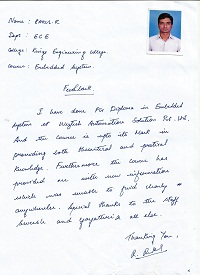 Name : BABUL. R
Dept : ECE
College: Kings Engineering College
Course: Embedded System.
Feedback
I have done PG Diploma in Embedded
System at Wegtech Automation Solution Pvt. Ltd.
And the course is upto its Mark in
promoting both theoretical and practical
knowledge. Furthermore the course has
provided me with new information
which was unable to find clearly
anywhere. Special thanks to the staff
Suresh and Gayathri & all else.
Thanking You,